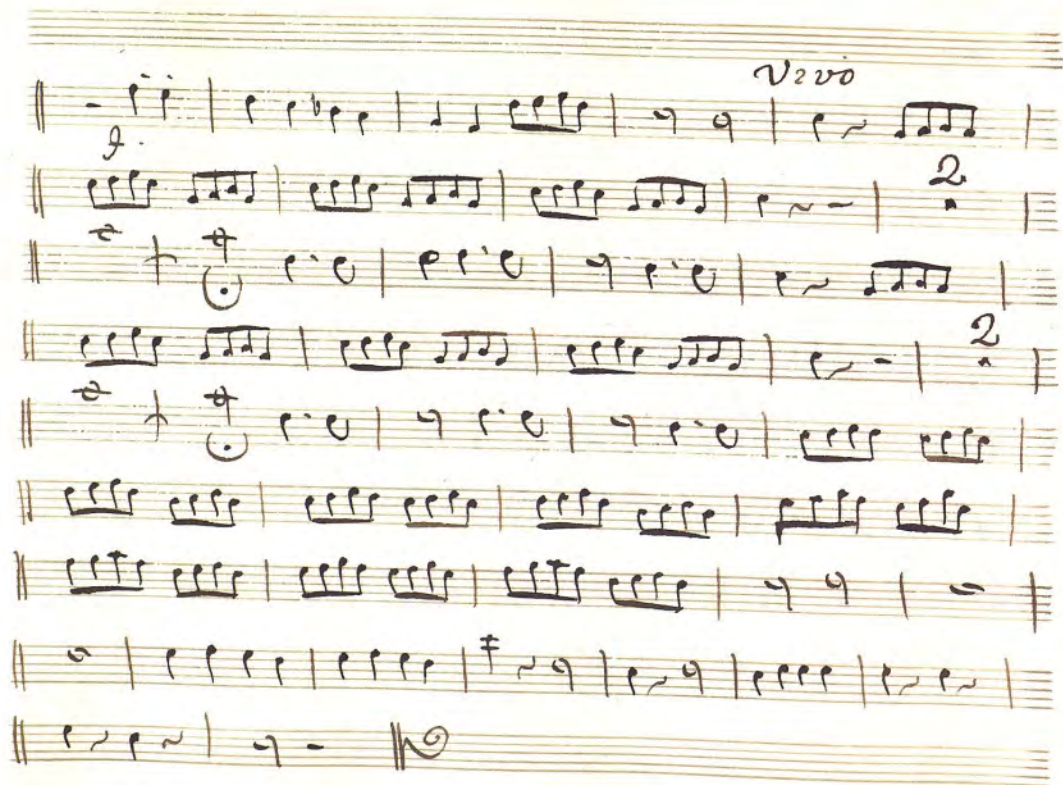 Vivo
p.
2
2